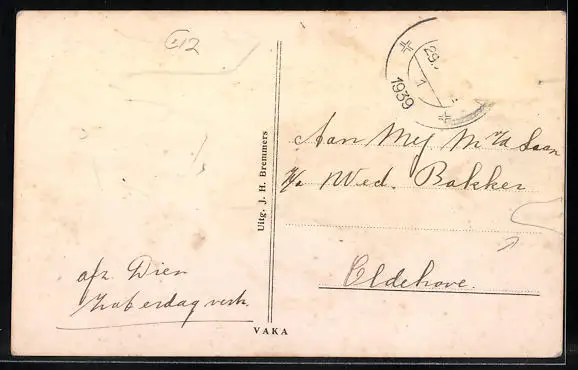 €12
29.
1
1939
Aan Mej M v/d Laan
p/a Wed. Bakker
Oldehove.
afz. Dien
Uitg. J. H. Bremmers
VAKA